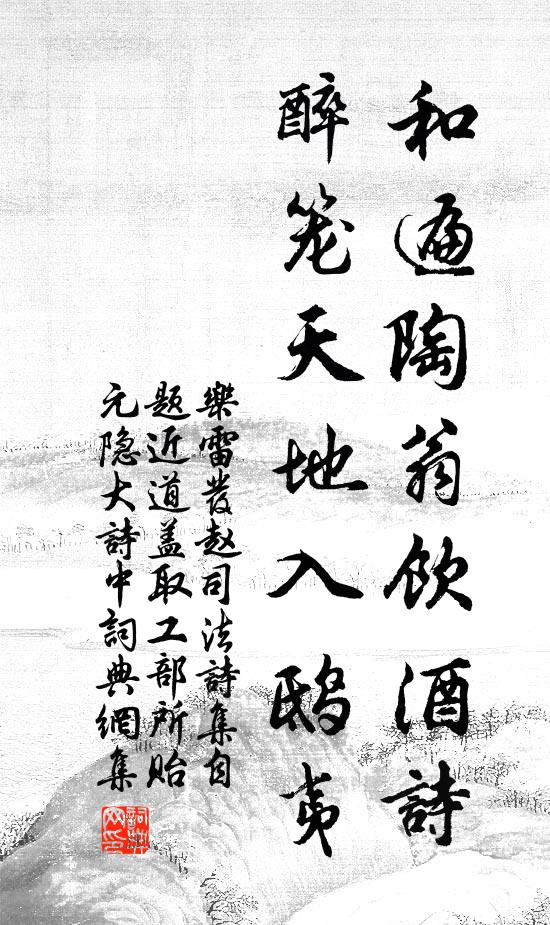 和遍陶翁飲酒詩
醉笼天地入鴟夷
樂雷發赵司法詩集自
題近道盖取工部所貽
元隐大詩中詞典網集
詞典网印